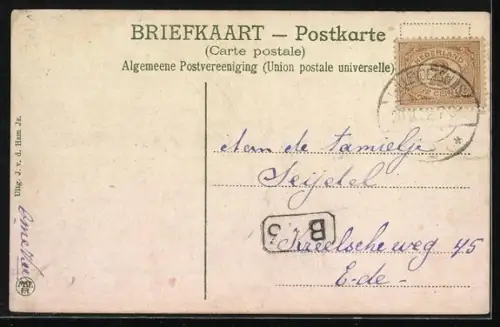 BRIEFKAART — Postkarte
(Carte postale)
Algemeene Postvereeniging (Union postale universelle)
NEDERLAND
Aan de Familje
Seijdel
Kreelscheweg 45
Ede-
B
Uitg. J. v. d. Ham Jz.